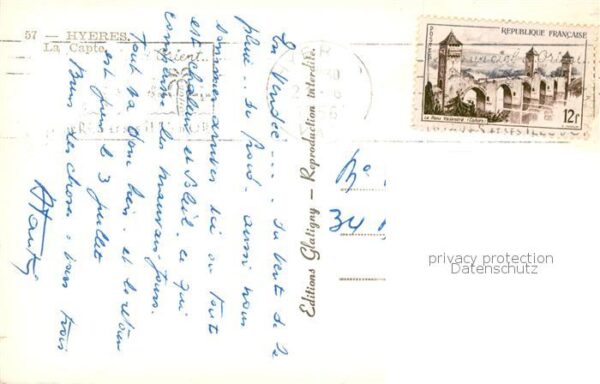 57 — HYERES.
La Capte.
En Vendée... du vent de la
pluie.. du froid. aussi nous
sommes arrivés ici ou tout
est chaleur et soleil. ce qui
compense les mauvais jours.
Tout va donc bien. et le retour
est pour le 3 juillet
Bien des choses à vous trois
Editions Glatigny — Reproduction interdite.
REPUBLIQUE FRANÇAISE
Le Pont Valentré (Cahors)
12F
34
privacy protection
Datenschutz